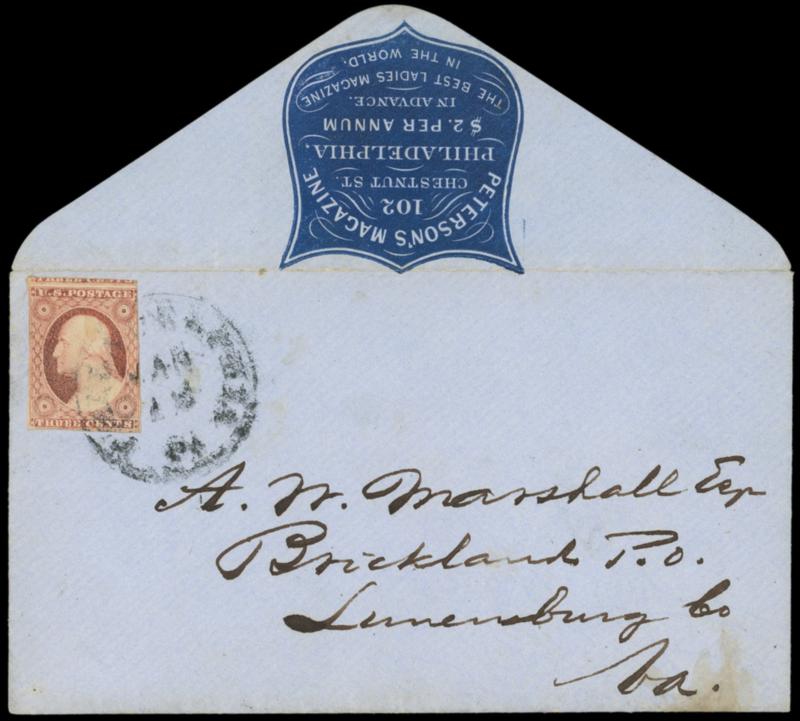 PETERSON'S MAGAZINE,
102
CHESTNUT ST.
PHILADELPHIA,
$2. PER ANNUM
IN ADVANCE.
THE BEST LADIES MAGAZINE
IN THE WORLD.
U.S. POSTAGE
THREE CENTS
A. W. Marshall Esqr
Brickland P.O.
Lunenburg Co
Va.